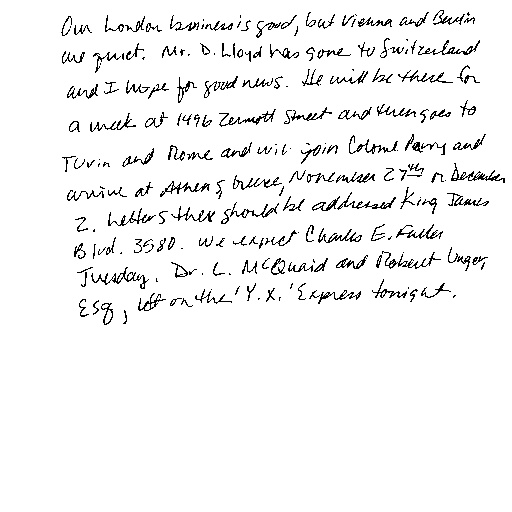 Our London business is good, but Vienna and Berlin
are quiet. Mr. D. Lloyd has gone to Switzerland
and I hope for good news. He will be there for
a week at 1496 Zermott Street and then goes to
Turin and Rome and will join Colonel Parry and
arrive at Athens, Greece, November 27th or December
2. Letters there should be addressed King James
Blvd. 3580. We expect Charles E. Fuller
Tuesday. Dr. L. McQuaid and Robert Unger,
Esq, left on the 'Y.X.' Express tonight.